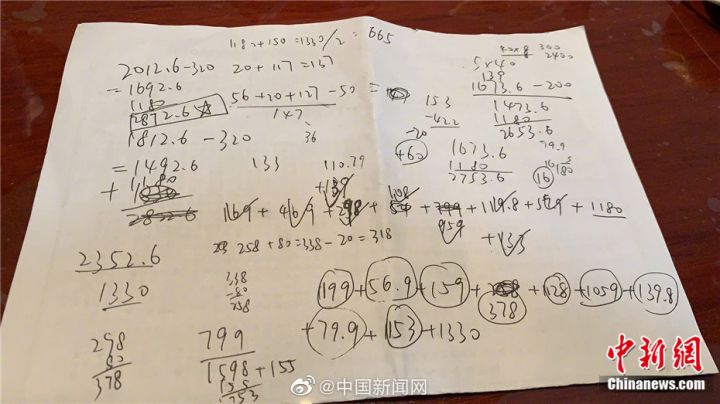 1180+150=1330/2=665
2012.6-320
20+117=137
=1692.6
1180
2872.6
56+20+127-50=
1×7
1812.6-320
36
=1492.6
133
110.79
+139
300
2400
5×40
139
1673.6-200
1473.6
1180
2653.6
153
-422
-20
+60
1673.6
1180
2753.6
79.9
16
180
16
108
169+469+298+54+799+1149.8+529+1180
959
+133
258+80=338-20=318
2352.6
1330
338
-80
258
298
80
378
799
1598+155
155
1753
199+56.9+159+
378
+128+1059+139.8
+79.9+153+1330
@中国新闻网
中新网
Chinanews.com